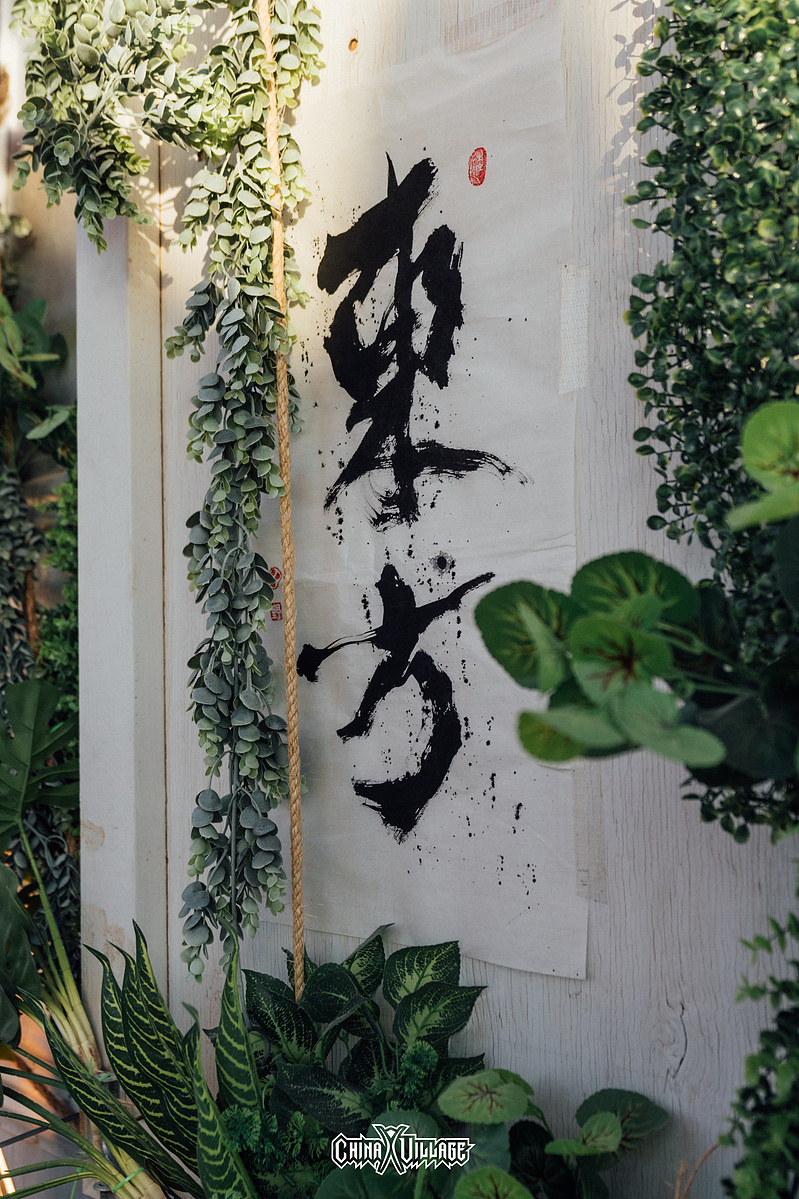 東方
CHINA VILLAGE